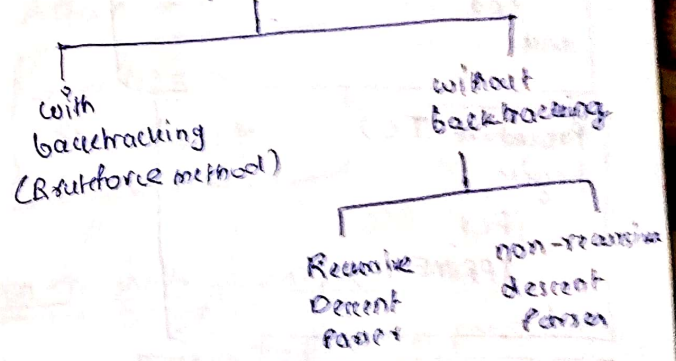 with
backtracking
(Bruteforce method)
without
backtracking
Recursive
Decent
parser
non-recursive
descent
Parser